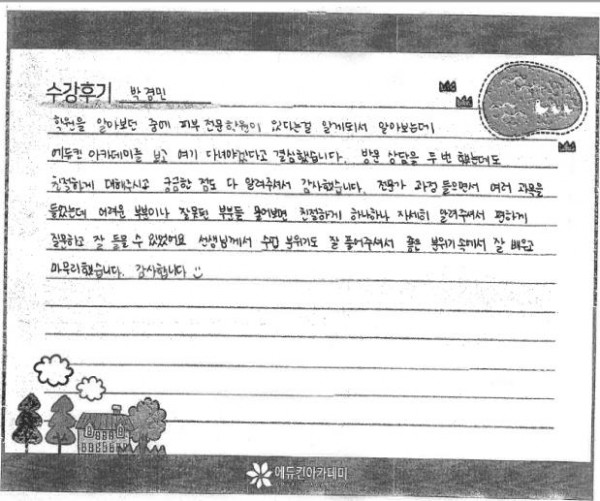 수강후기 박경민
학원을 알아보던 중에 피부 전문학원이 있다는걸 알게되서 알아보는데
에듀킨 아카데미를 보고 여기 다녀야겠다고 결심했습니다. 방문 상담을 두 번 했는데도
친절하게 대해주시고 궁금한 점도 다 알려주셔서 감사했습니다. 전문가 과정 들으면서 여러 과목을
들었는데 어려운 부분이나 잘못된 부분들 물어보면 친절하게 하나하나 자세히 알려주셔서 편하게
질문하고 잘 들을 수 있었어요 선생님께서 수업 분위기도 잘 풀어주셔서 좋은 분위기 속에서 잘 배우고
마무리했습니다. 감사합니다
에듀킨아카데미